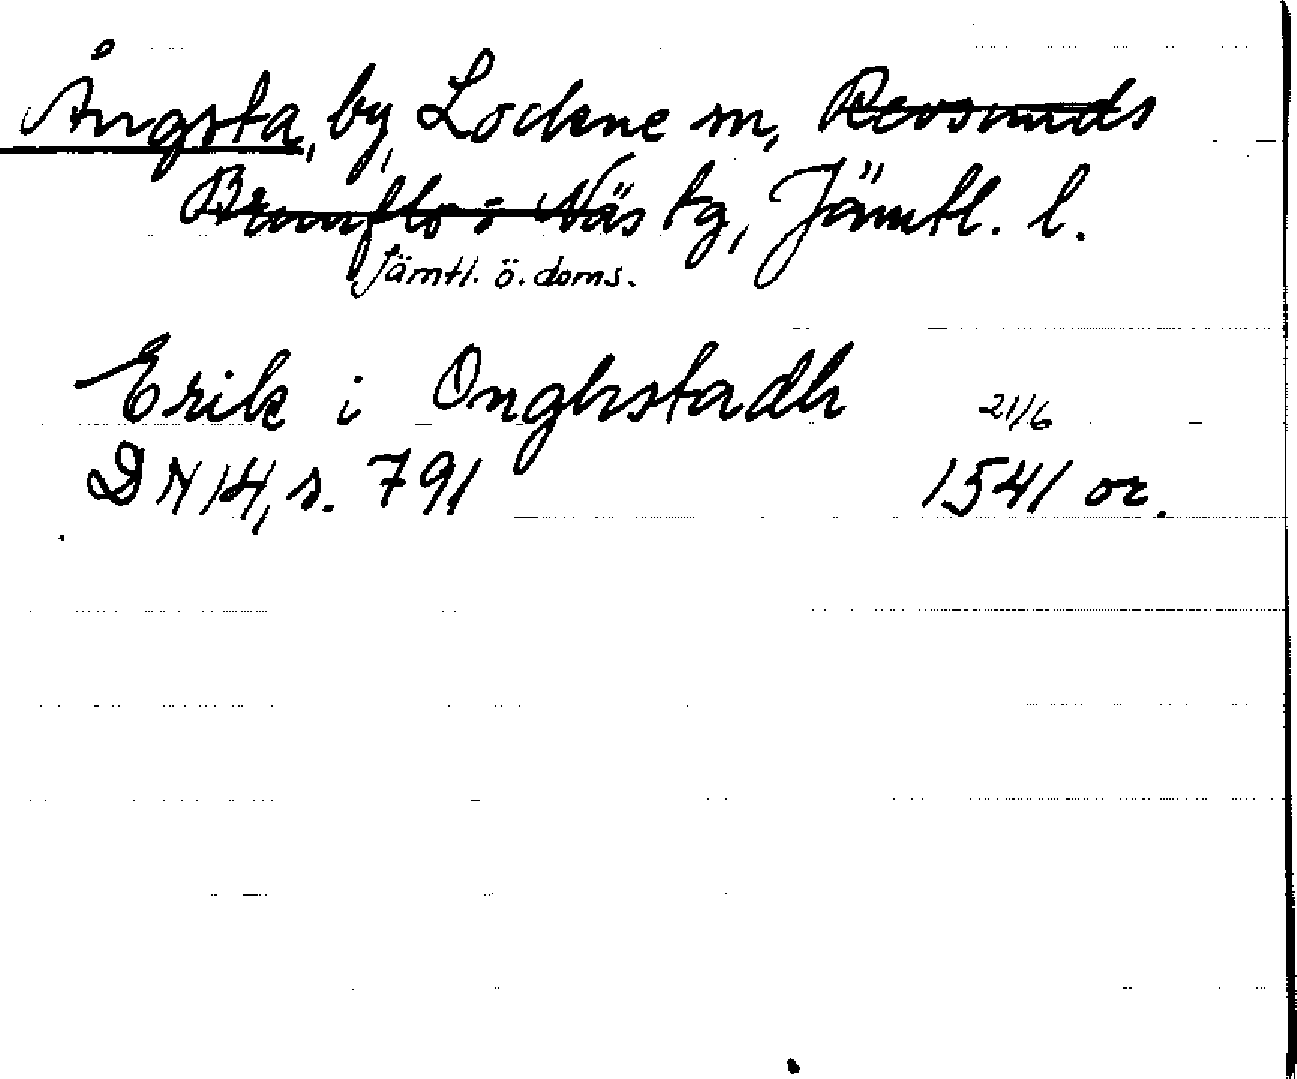 Ångsta, by, Lockne sn, Revsunds
Brunflo o Näs tg, Jämtl. l.
Jämtl. ö. doms.
Erik i Onghstadh 21/6
DN 14, s. 791 1541 or.